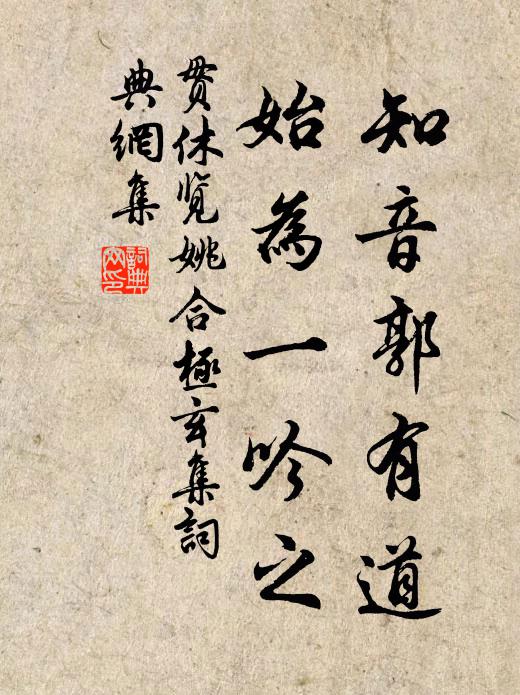 知音郭有道
始為一吟之
贯休览姚合極玄集詞
典網集
詞典网印